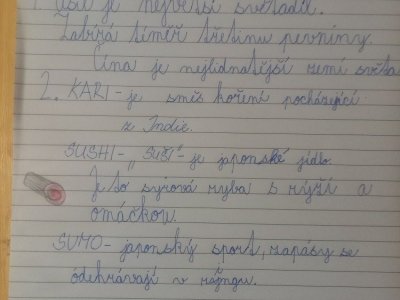 1. Asie je největší světadíl.
Zabírá téměř třetinu pevniny.
Čína je nejlidnatější zemí světa
2. KARI - je směs koření pocházející
z Indie.
SUSHI - „SUŠI" - je japonské jídlo.
Je to syrová ryba s rýží a
omáčkou.
SUMO - japonský sport, zápasy se
odehrávají v rýngu.